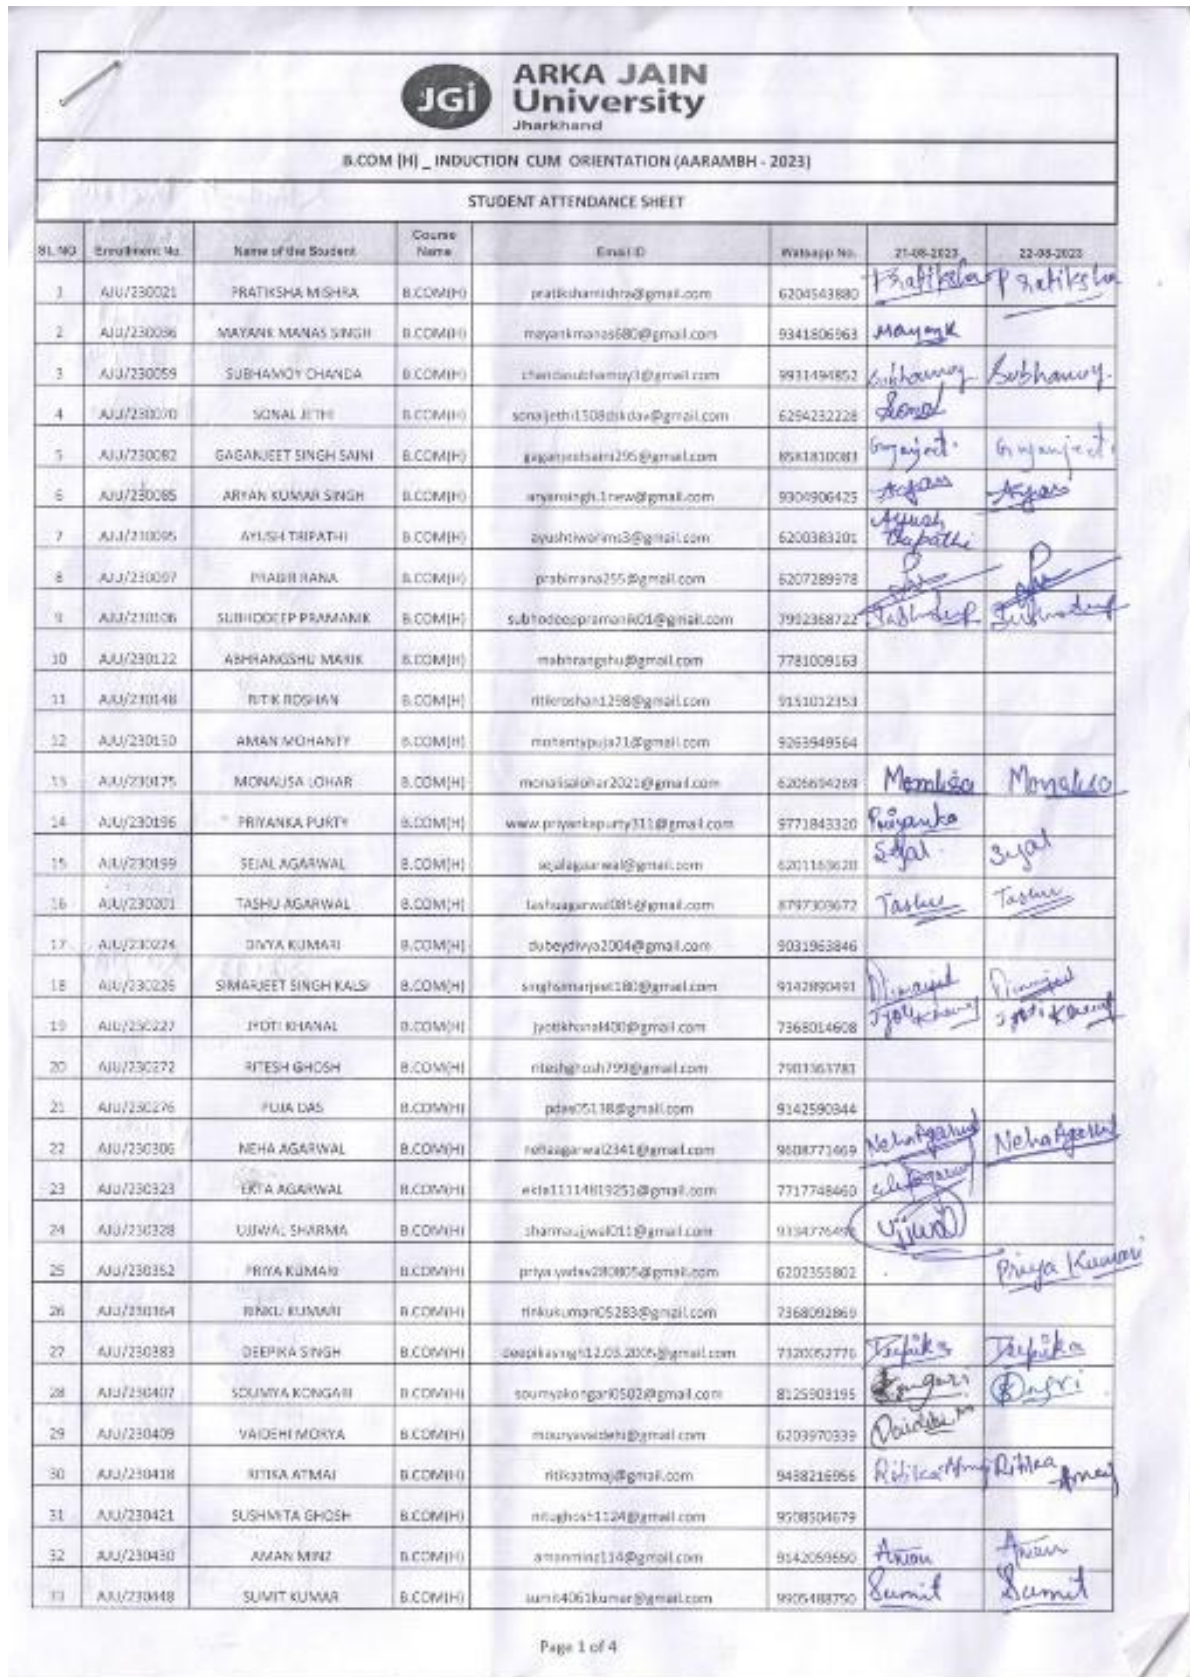 JGi
ARKA JAIN
University
Jharkhand
B.COM (H) _ INDUCTION CUM ORIENTATION (AARAMBH - 2023)
STUDENT ATTENDANCE SHEET
SL.NO Enrollment No. Name of the Student Course Name Email ID Watsapp No. 21-08-2023 22-08-2023
1 AJU/230021 PRATIKSHA MISHRA B.COM(H) pratikshamishra@gmail.com 6204543880 Pratiksha Pratiksha
2 AJU/230036 MAYANK MANAS SINGH B.COM(H) mayankmanas680@gmail.com 9341806963 Mayank
3 AJU/230059 SUBHAMOY CHANDA B.COM(H) chandasubhamoy3@gmail.com 9931494852 Subhamoy Subhamoy.
4 AJU/230070 SONAL JETHI B.COM(H) sonaljethi1508dskdav@gmail.com 6294232228 Sonal
5 AJU/230082 GAGANJEET SINGH SAINI B.COM(H) gaganjeetsaini295@gmail.com 8581810083
6 AJU/230085 ARYAN KUMAR SINGH B.COM(H) aryansingh.1new@gmail.com 9304906425 Aryan Aryan
7 AJU/230095 AYUSH TRIPATHI B.COM(H) ayushtiwarims3@gmail.com 6200383201 Ayush Tripathi
8 AJU/230097 PRABIR RANA B.COM(H) prabirrana255@gmail.com 6207289978
9 AJU/230106 SUBHODEEP PRAMANIK B.COM(H) subhodeeppramanik01@gmail.com 7992368722 Subhodeep Subhodeep
10 AJU/230122 ABHRANGSHU MARIK B.COM(H) mabhrangshu@gmail.com 7781009163
11 AJU/230148 RITIK ROSHAN B.COM(H) ritikroshan1298@gmail.com 9151012353
12 AJU/230150 AMAN MOHANTY B.COM(H) mohantypuja71@gmail.com 9263949564
13 AJU/230175 MONALISA LOHAR B.COM(H) monalisalohar2021@gmail.com 6206694269 Monalisa Monalisa
14 AJU/230196 PRIYANKA PURTY B.COM(H) www.priyankapurty311@gmail.com 9771843320 Priyanka
15 AJU/230199 SEJAL AGARWAL B.COM(H) sejalagaarwal@gmail.com 6201163620 Sejal Sejal
16 AJU/230201 TASHU AGARWAL B.COM(H) tashuagarwal085@gmail.com 8797303672 Tashu Tashu
17 AJU/230224 DIVYA KUMARI B.COM(H) dubeydivya2004@gmail.com 9031963846
18 AJU/230226 SIMARJEET SINGH KALSI B.COM(H) singhsimarjeet180@gmail.com 9142890491
19 AJU/230227 JYOTI KHANAL B.COM(H) jyotikhanal400@gmail.com 7368014608 Jyoti Khanal Jyoti Khanal
20 AJU/230272 RITESH GHOSH B.COM(H) riteshghosh799@gmail.com 7903363781
21 AJU/230276 PUJA DAS B.COM(H) pdas05138@gmail.com 9142590344
22 AJU/230306 NEHA AGARWAL B.COM(H) nehaagarwal2341@gmail.com 9608771469 Neha Agarwal Neha Agarwal
23 AJU/230323 EKTA AGARWAL B.COM(H) ekta11114819251@gmail.com 7717748460
24 AJU/230328 UJJWAL SHARMA B.COM(H) sharmaujjwal011@gmail.com Ujjwal
25 AJU/230352 PRIYA KUMARI B.COM(H) priya.yadav280805@gmail.com 6202355802 Priya Kumari
26 AJU/230364 RINKU KUMARI B.COM(H) rinkukumari05283@gmail.com 7368092869
27 AJU/230383 DEEPIKA SINGH B.COM(H) deepikasingh12.03.2005@gmail.com 7320052776 Deepika Deepika
28 AJU/230407 SOUMYA KONGARI B.COM(H) soumyakongari0502@gmail.com 8125903195 Kongari
29 AJU/230409 VAIDEHI MORYA B.COM(H) mouryavaidehi@gmail.com 6203970339 Vaidehi
30 AJU/230418 RITIKA ATMAJ B.COM(H) ritikaatmaj@gmail.com 9438216956 Ritika Atmaj Ritika Atmaj
31 AJU/230421 SUSHMITA GHOSH B.COM(H) mitughosh1124@gmail.com 9508504679
32 AJU/230430 AMAN MINZ B.COM(H) amanminz114@gmail.com 9142059650 Aman Aman
33 AJU/230448 SUMIT KUMAR B.COM(H) sumit4061kumar@gmail.com 9905488750 Sumit Sumit
Page 1 of 4